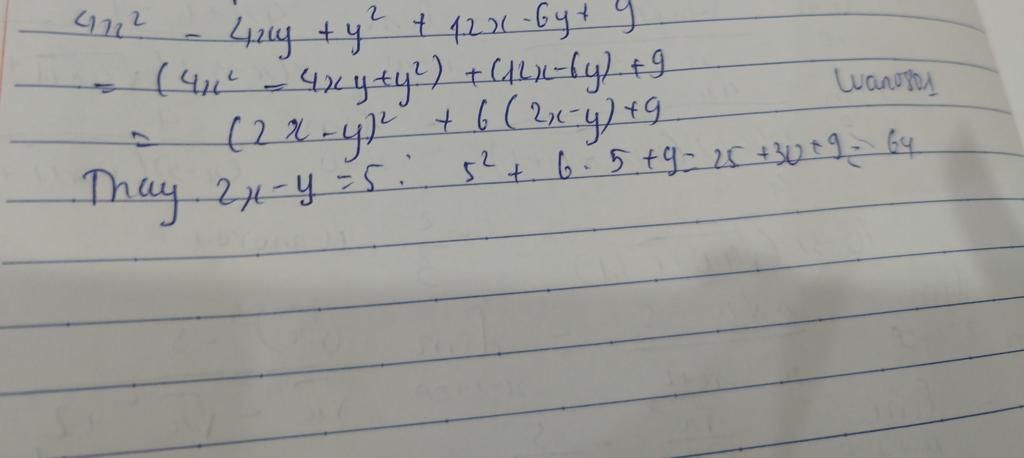 4x² - 4xy + y² + 12x - 6y + 9
= (4x² - 4xy + y²) + (12x - 6y) + 9
= (2x - y)² + 6(2x - y) + 9
Thay 2x - y = 5 : 5² + 6 . 5 + 9 = 25 + 30 + 9 = 64